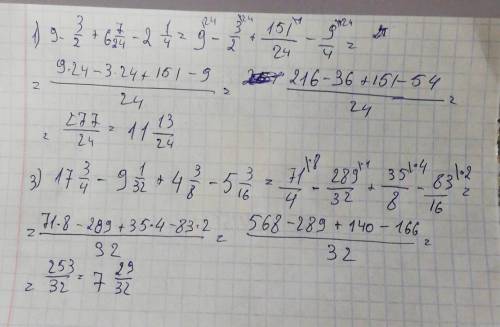 1) 9 - 3/2 + 6 7/24 - 2 1/4 = 9 - 3/2 + 151/24 - 9/4 =
= (9·24 - 3·24 + 151 - 9)/24 = (216 - 36 + 151 - 54)/24 =
= 277/24 = 11 13/24
3) 17 3/4 - 9 1/32 + 4 3/8 - 5 3/16 = 71\·8/4 - 289\·1/32 + 35\·4/8 - 83\·2/16 =
= (71·8 - 289 + 35·4 - 83·2)/32 = (568 - 289 + 140 - 166)/32 =
= 253/32 = 7 29/32